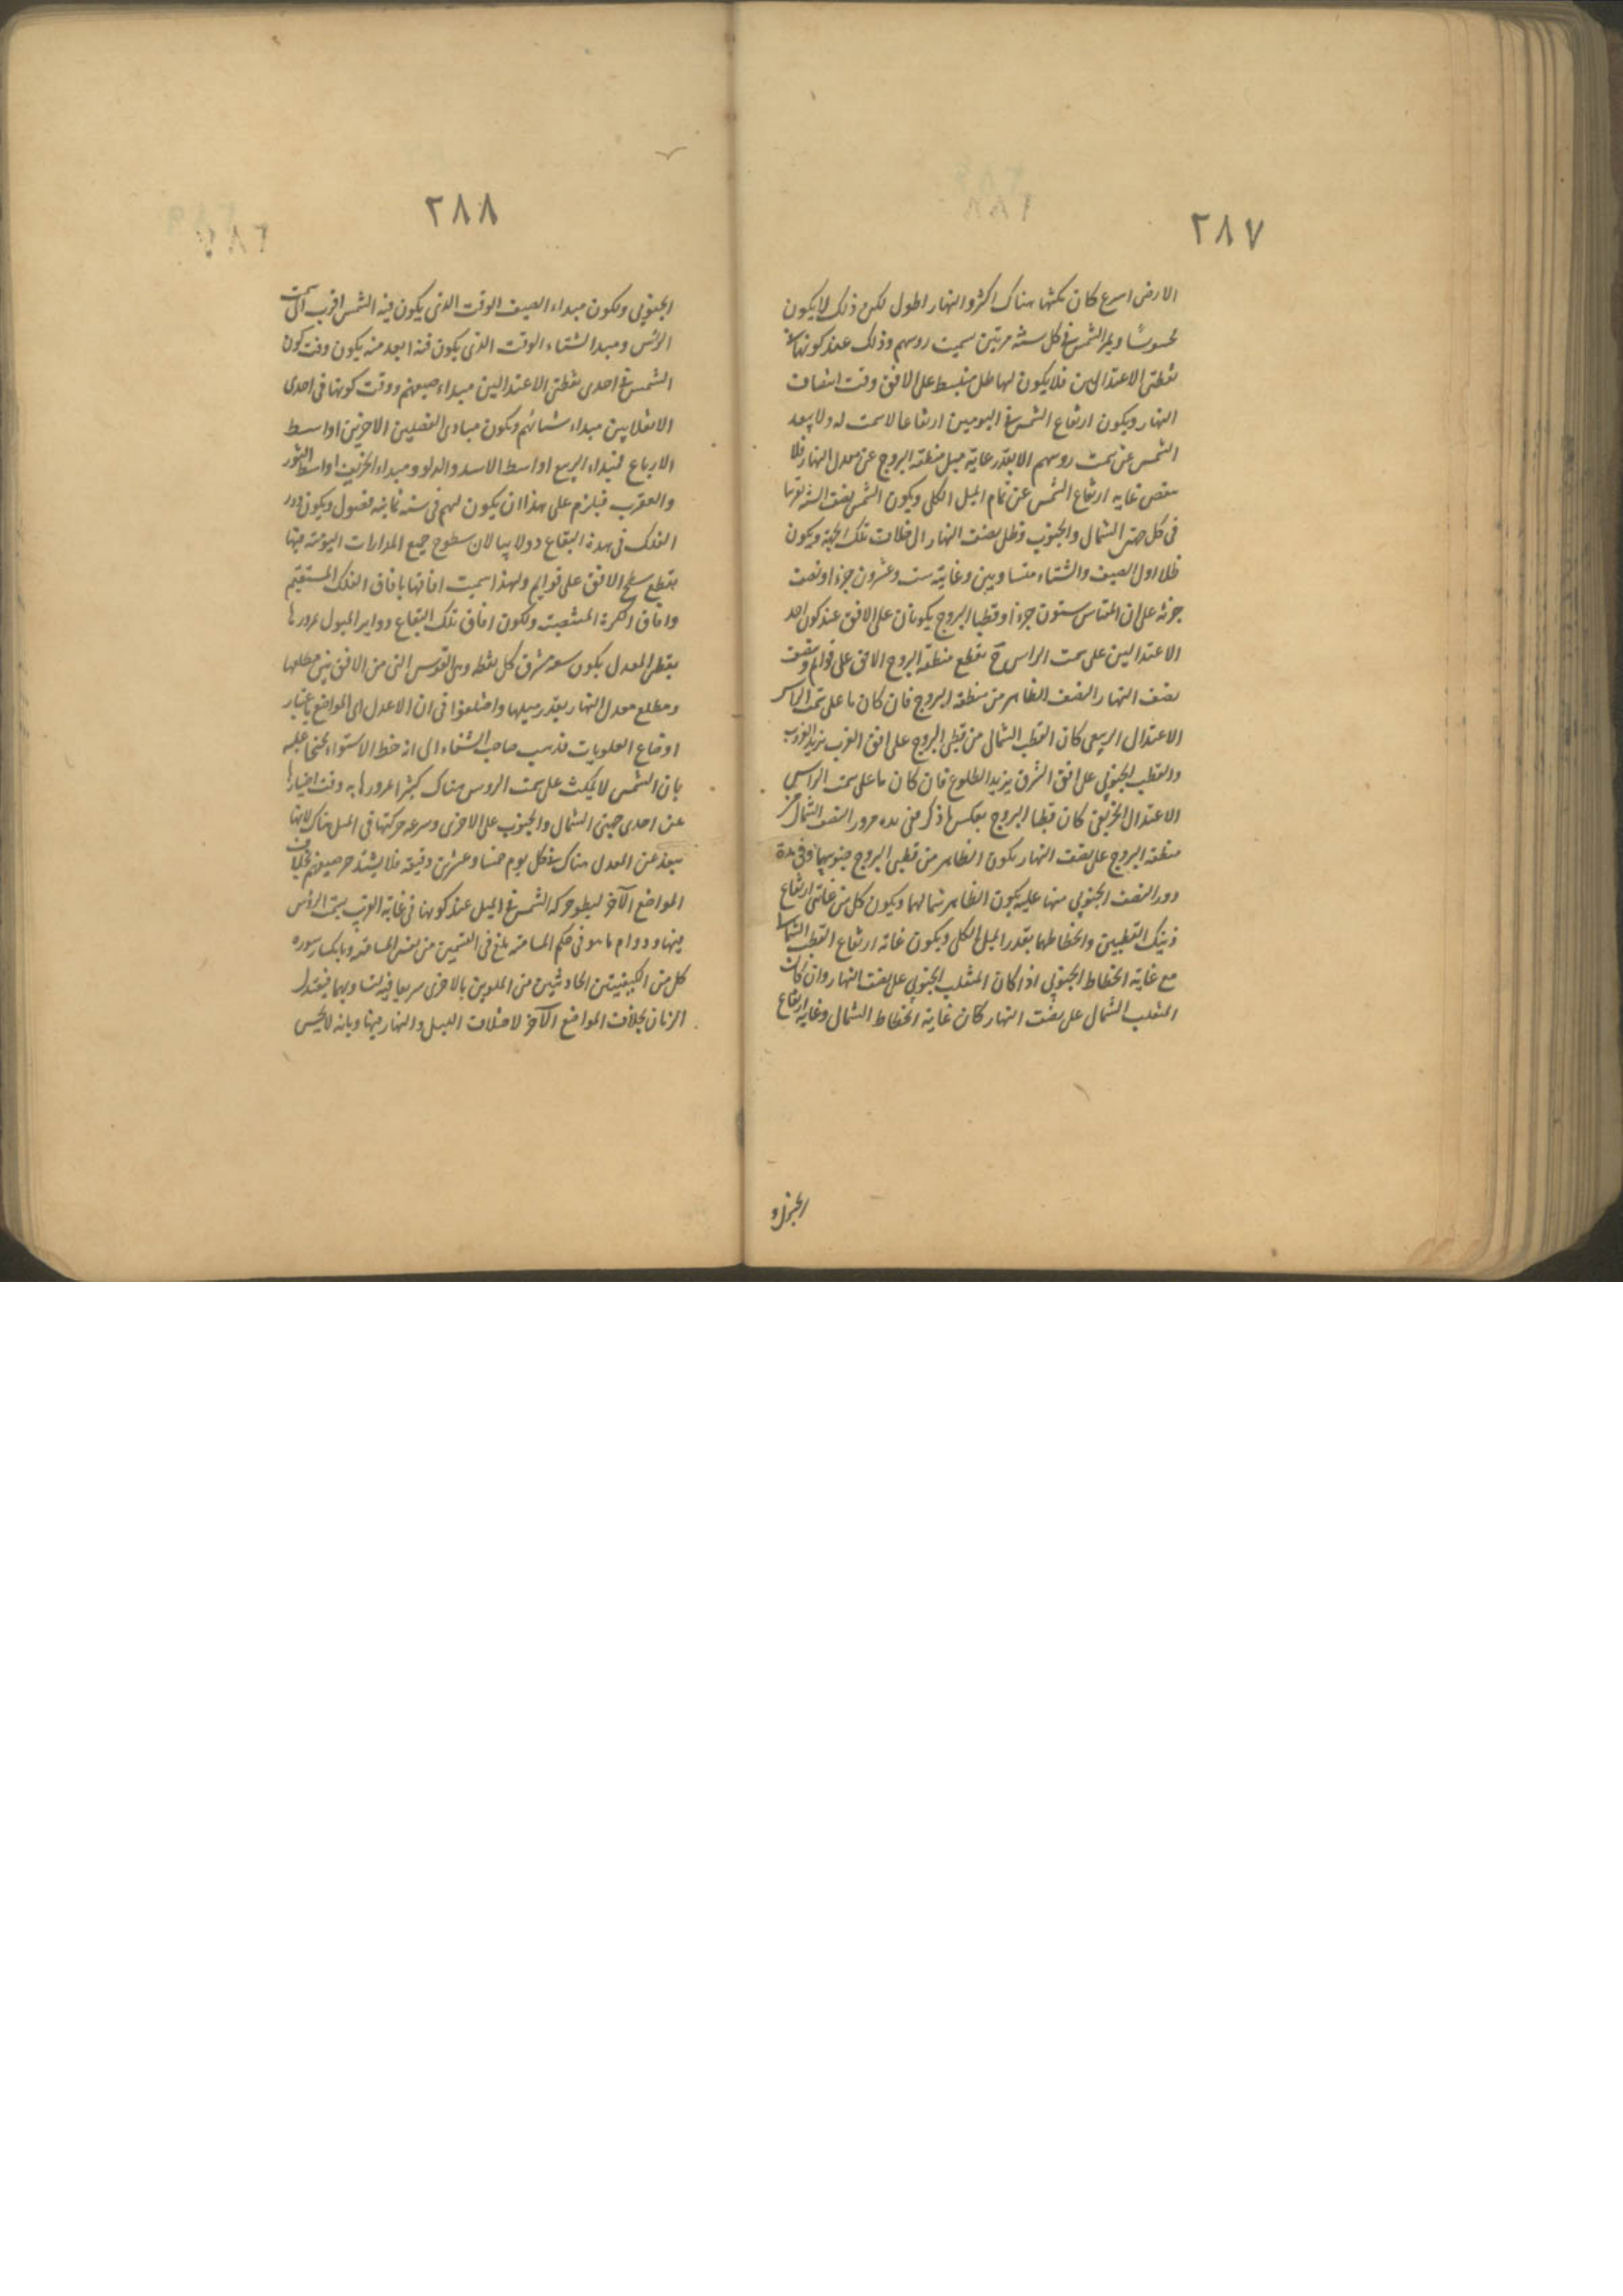 ٢٨٧
الارض اسرع كان مكثها هناك اكثر والنهار اطول لكن ذلك لا يكون
محسوسًا ويمر الشمس فى كل سنة مرتين بسمت روسهم وذلك عند كونها فى
نقطتى الاعتدالين فلا يكون لها ظل منبسط على الافق وقت انتصاف
النهار ويكون ارتفاع الشمس فى اليومين ارتفاعا لا سمت له ولا يبعد
الشمس عن سمت روسهم الا بقدر غاية ميل منطقة البروج عن معدل النهار فلا
ينقص غاية ارتفاع الشمس عن تمام الميل الكلى ويكون الشمس نصف السنة تقريبا
فى كل جهتى الشمال والجنوب وظل نصف النهار الى خلاف تلك الجهة ويكون
ظلا اول الصيف والشتاء متساويين وغايته ست وعشرون جزءا ونصف
جزء على ان المقياس ستون جزءا وقطبا البروج يكونان على الافق عند كون احد
الاعتدالين على سمت الراس وح يقطع منطقة البروج الافق على قوائم وينصف
نصف النهار النصف الظاهر من منطقة البروج فان كان ما على سمت الراس
الاعتدال الربيعى كان القطب الشمالى من قطبى البروج على افق الغرب يريد الغروب
والقطب الجنوبى على افق الشرق يريد الطلوع فان كان ما على سمت الراس
الاعتدال الخريفى كان قطبا البروج بعكس ما ذكر ففى مدة مرور النصف الشمالى من
منطقة البروج على نصف النهار يكون الظاهر من قطبى البروج جنوبيهما وفى مدة
دور النصف الجنوبى منها عليه يكون الظاهر شمالهما ويكون كل من غايتى ارتفاع
ذينك القطبين وانحطاطهما بقدر الميل الكلى ويكون غاية ارتفاع القطب الشمالى
مع غاية انحطاط الجنوبى اذا كان المنقلب الجنوبى على نصف النهار وان كان
المنقلب الشمالى على نصف النهار كان غاية انحطاط الشمالى وغاية ارتفاع
الجنوبى و
٢٨٨
الجنوبى ويكون مبداء الصيف الوقت الذى يكون فيه الشمس اقرب الى سمت
الرأس ومبدا الشتاء الوقت الذى يكون فيه ابعد منه يكون وقت كون
الشمس فى احدى نقطتى الاعتدالين مبداء صيفهم ووقت كونها فى احدى
الانقلابين مبداء شتائهم ويكون مبادى الفصلين الاخرين اواسط
الارباع فمبداء الربيع اواسط الاسد والدلو ومبداء الخريف اواسط الثور
والعقرب فيلزم على هذا ان يكون لهم فى سنة ثمانية فصول ويكون دور
الفلك فى هذه البقاع دولابيا لان سطوح جميع المدارات اليومية فيها
يقطع سطح الافق على قوايم ولهذا سميت افاقها بافاق الفلك المستقيم
وافاق الكرة المنتصبة ولكون افاق تلك البقاع دواير الميول لمرورها
بقطبى المعدل يكون سعة مشرق كل نقطة وهى القوس التى من الافق بين مطلعها
ومطلع معدل النهار بقدر ميلها واختلفوا فى ان الاعدل اى المواضع باعتبار
اوضاع العلويات فذهب صاحب الشفاء الى انه خط الاستواء محتجا عليه
بان الشمس لا يمكث على سمت الروس هناك كثيرا لمرورها به وقت اجتيازها
عن احدى جهتى الشمال والجنوب على الاخرى وسرعة حركتها فى الميل هناك لانها
تبعد عن المعدل هناك فى كل يوم خمسا وعشرين دقيقة فلا يشتد حر صيفهم بخلاف
المواضع الآخر لبطو حركة الشمس فى الميل عند كونها فى غاية القرب بسمت الرأس
فيها ودوام ما هو فى حكم المسامتة بلغ فى التسخين من نفس المسامتة وبانكسار سورة
كل من الكيفيتين الحادثتين من الملوين بالاخرى سريعا فيه لتساويهما فيعتدل
الزمان بخلاف المواضع الآخر لاختلاف الليل والنهار فيها وبانه لا يحس